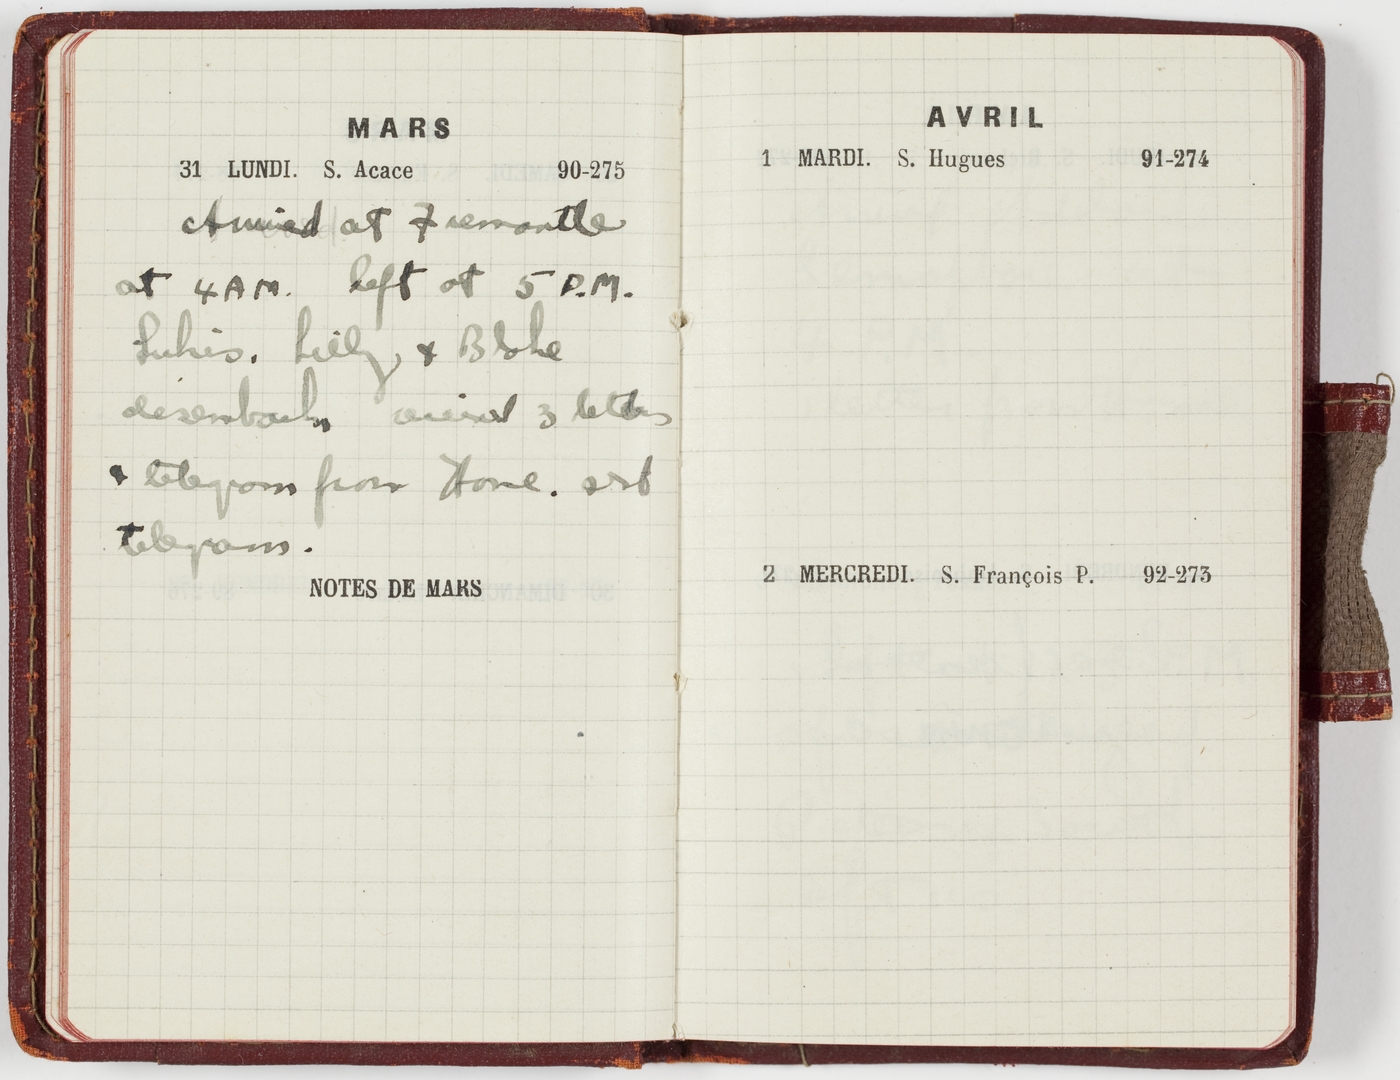 MARS
31 LUNDI. S. Acace 90-275
Arrived at Fremantle
at 4 A.M. left at 5 P.M.
Lukis, Lilly, & Blake
disembark, received 3 letters
& telegram from Home. sent
telegram.
NOTES DE MARS
AVRIL
1 MARDI. S. Hugues 91-274
2 MERCREDI. S. François P. 92-273